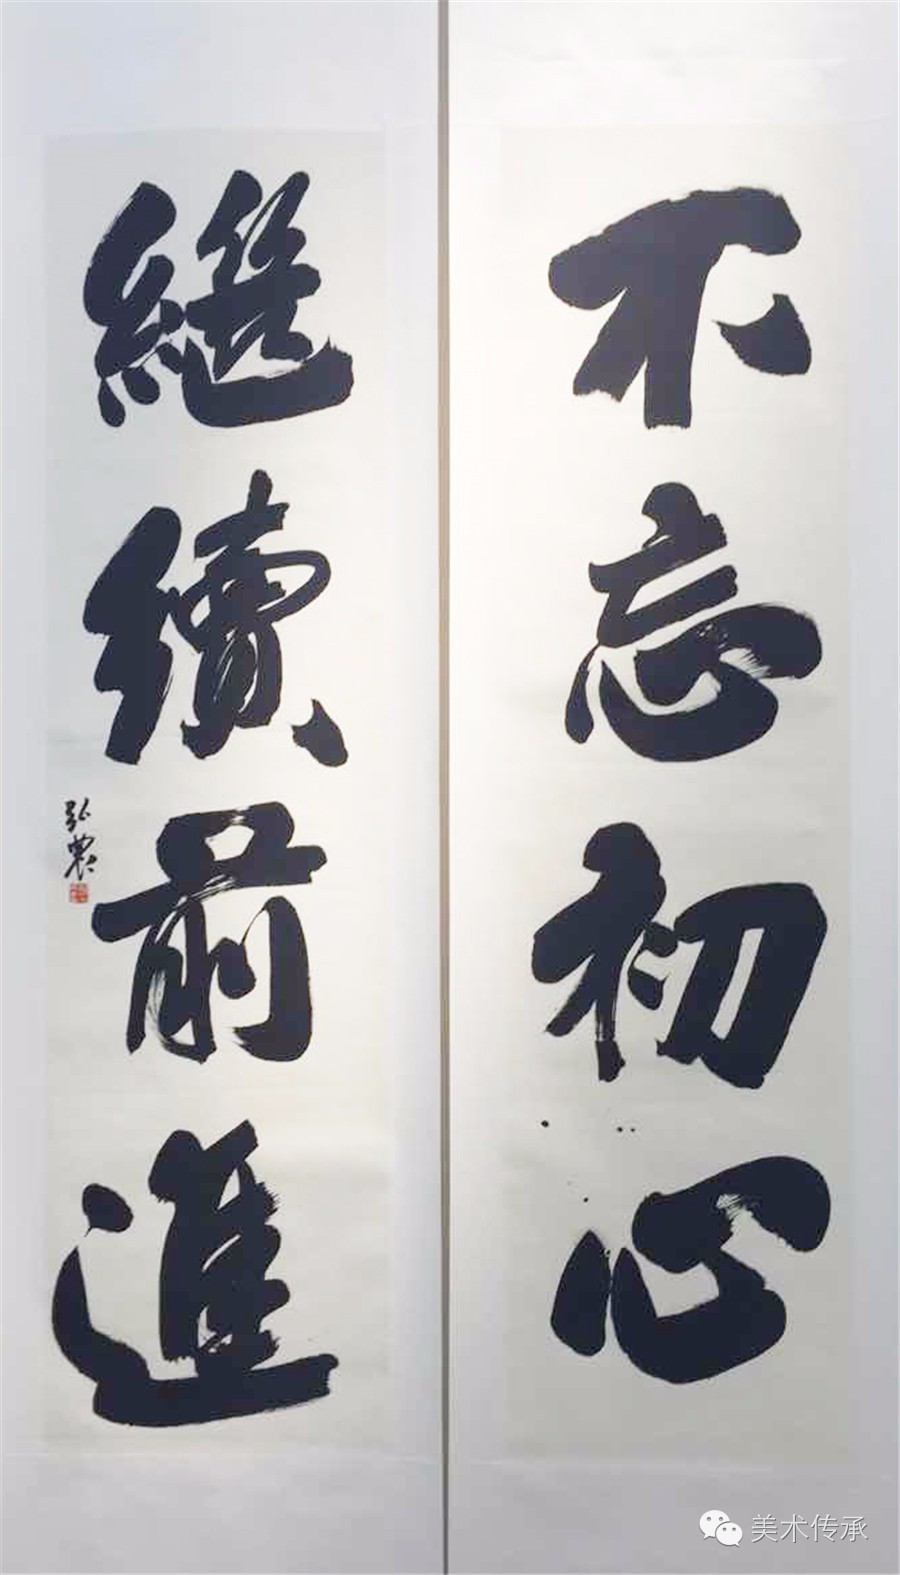 不忘初心
繼續前進
弘農
美术传承